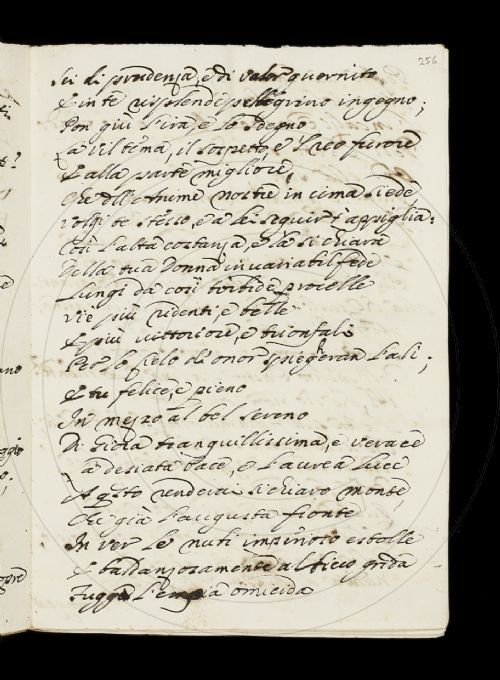 256
Sei di prudenza, e di valor guernito
E in te risplende pellegrino ingegno;
Pon giù l'ira, e lo sdegno
il sospetto e 'l reo furore
E alla parte migliore,
Che dll'Anime nostre in cima siede
Volgi te stesso, e a lei seguir t'appiglia:
Così l'alta costanza, e la sì chiara
Della tua Donna invariabil fede
Lungi da così torbide procelle
Vie più ridenti, e belle
E più vittoriose, e trionfali
Per lo Cielo di onor spiegheran l'ali;
E tu felice, e pieno
In mezzo al bel sereno
Di gioia tranquillissima, e verace
a desiata Pace, e Laurea luce
A qsto renderai sì chiaro monte,
Che già l'augusta fronte
In ver le nubi estolle
E baldanzosamente al fiero grida
Fugga l'empia omicida